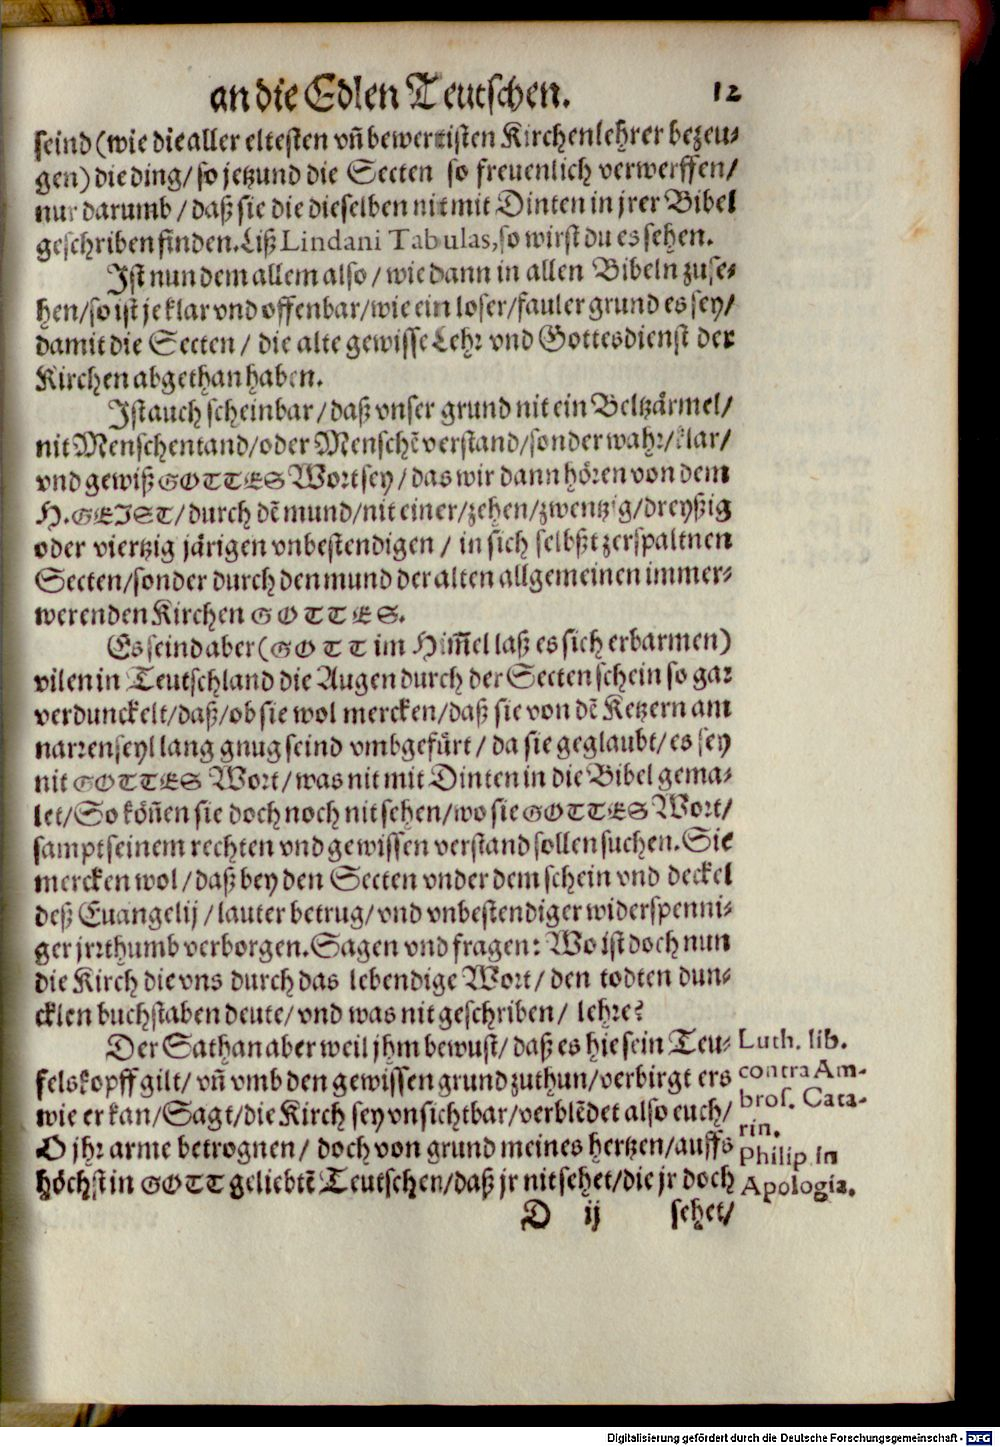 an die Edlen Teutschen. 12
seind (wie die aller eltesten vn̄ bewertisten Kirchenlehrer bezeu-
gen) die ding/ so jetzund die Secten so freuenlich verwerffen/
nur darumb / daß sie die dieselben nit mit Dinten in jrer Bibel
geschriben finden. Liß Lindani Tabulas, so wirst du es sehen.
Ist nun dem allem also / wie dann in allen Bibeln zuse-
hen/ so ist je klar vnd offenbar/ wie ein loser/ fauler grund es sey/
damit die Secten / die alte gewisse Lehr vnd Gottesdienst der
Kirchen abgethan haben.
Ist auch scheinbar / daß vnser grund nit ein Beltzärmel/
nit Menschentand/ oder Menschē verstand/ sonder wahr/ klar/
vnd gewiß GOTTES Wort sey / das wir dann hören von dem
H. GEIST/ durch dē mund/ nit einer/ zehen/ zwentzig/ dreyßig
oder viertzig järigen vnbestendigen / in sich selbßt zerspaltnen
Secten/ sonder durch den mund der alten allgemeinen immer-
werenden Kirchen GOTTES.
Es seind aber (GOTT im Him̄el laß es sich erbarmen)
vilen in Teutschland die Augen durch der Secten schein so gar
verdunckelt/ daß/ ob sie wol mercken/ daß sie von dē Ketzern am
narrenseyl lang gnug seind vmbgefürt / da sie geglaubt/ es sey
nit GOTTES Wort/ was nit mit Dinten in die Bibel gema-
let/ So kön̄en sie doch noch nit sehen/ wo sie GOTTES Wort/
sampt seinem rechten vnd gewissen verstand sollen suchen. Sie
mercken wol / daß bey den Secten vnder dem schein vnd deckel
deß Euangelij / lauter betrug/ vnd vnbestendiger widerspenni-
ger jrrthumb verborgen. Sagen vnd fragen: Wo ist doch nun
die Kirch die vns durch das lebendige Wort/ den todten dun-
cklen buchstaben deute/ vnd was nit geschriben / lehre?
Der Sathan aber weil jhm bewust/ daß es hie sein Teu-
felskopff gilt/ vn̄ vmb den gewissen grund zuthun/ verbirgt ers
wie er kan/ Sagt/ die Kirch sey vnsichtbar/ verblēdet also euch/
O jhr arme betrognen / doch von grund meines hertzen/ auffs
höchst in GOTT geliebtē Teutschen/ daß jr nit sehet/ die jr doch
D ij sehet/
Luth. lib.
contra Am-
bros. Cata-
rin.
Philip. in
Apologia.
Digitalisierung gefördert durch die Deutsche Forschungsgemeinschaft - DFG